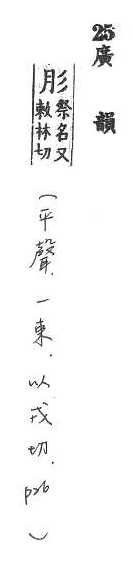 25廣韻
肜祭名又敕林切
（平聲．一東．以戎切．p26）